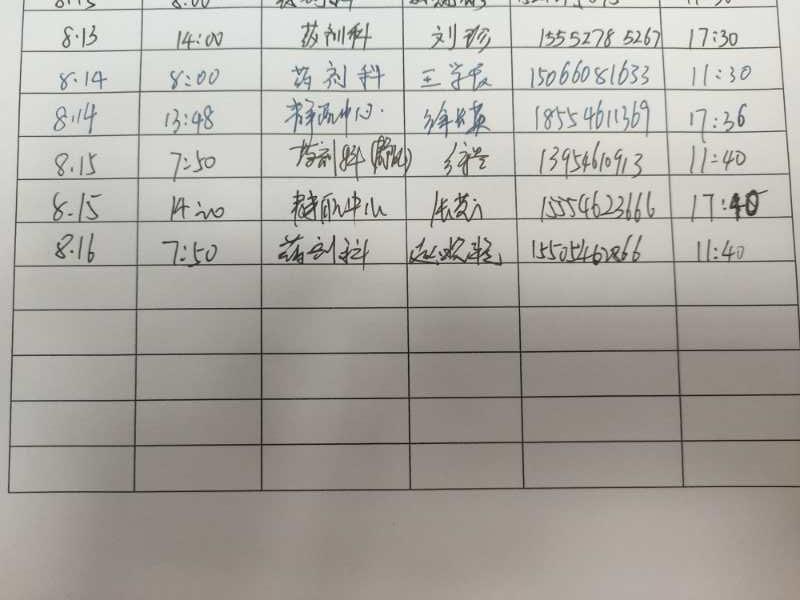 8.13 14:00 药剂科 刘珍 13552785267 17:30
8.14 8:00 药剂科 王学 15066081633 11:30
8.14 13:48 静配中心 徐英 18554611369 17:36
8.15 7:50 药剂科 13954610913 11:40
8.15 14:20 静配中心 15554623666 17:40
8.16 7:50 药剂科 赵 15505462866 11:40